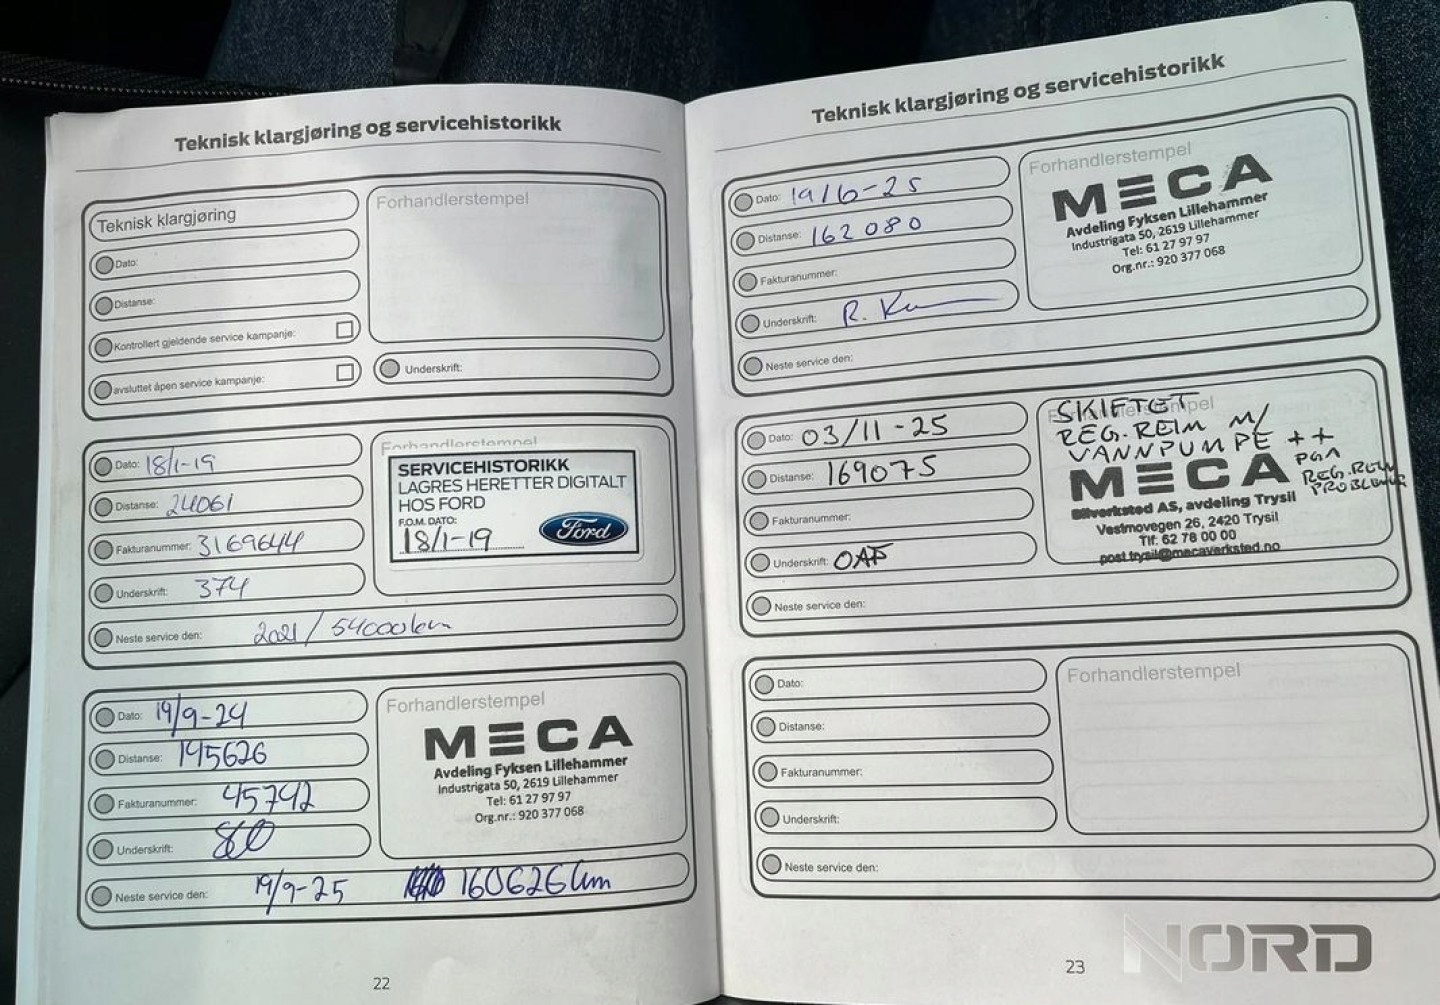 Teknisk klargjøring og servicehistorikk
Teknisk klargjøring
Dato:
Distanse:
Kontrollert gjeldende service kampanje:
avsluttet åpen service kampanje:
Forhandlerstempel
Underskrift:
Dato: 18/1-19
Distanse: 24061
Fakturanummer: 3169644
Underskrift: 374
Neste service den: 2021 / 54000km
Forhandlerstempel
SERVICEHISTORIKK
LAGRES HERETTER DIGITALT
HOS FORD
F.O.M. DATO:
18/1-19
Ford
Dato: 19/9-24
Distanse: 145626
Fakturanummer: 45742
Underskrift:
Neste service den: 19/9-25 160626km
Forhandlerstempel
MECA
Avdeling Fyksen Lillehammer
Industrigata 50, 2619 Lillehammer
Tel: 61 27 97 97
Org.nr.: 920 377 068
22
Teknisk klargjøring og servicehistorikk
Dato: 19/6-25
Distanse: 162080
Fakturanummer:
Underskrift: R.
Neste service den:
Forhandlerstempel
MECA
Avdeling Fyksen Lillehammer
Industrigata 50, 2619 Lillehammer
Tel: 61 27 97 97
Org.nr.: 920 377 068
Dato: 03/11-25
Distanse: 169075
Fakturanummer:
Underskrift: OAF
Neste service den:
Forhandlerstempel
SKIFTET
REG.REIM M/
VANNPUMPE ++
PGA
REG.REIM
PROBLEMER
MECA
Bilverksted AS, avdeling Trysil
Vestmovegen 26, 2420 Trysil
Tlf: 62 78 00 00
post.trysil@mecaverksted.no
Dato:
Distanse:
Fakturanummer:
Underskrift:
Neste service den:
Forhandlerstempel
23
NORD